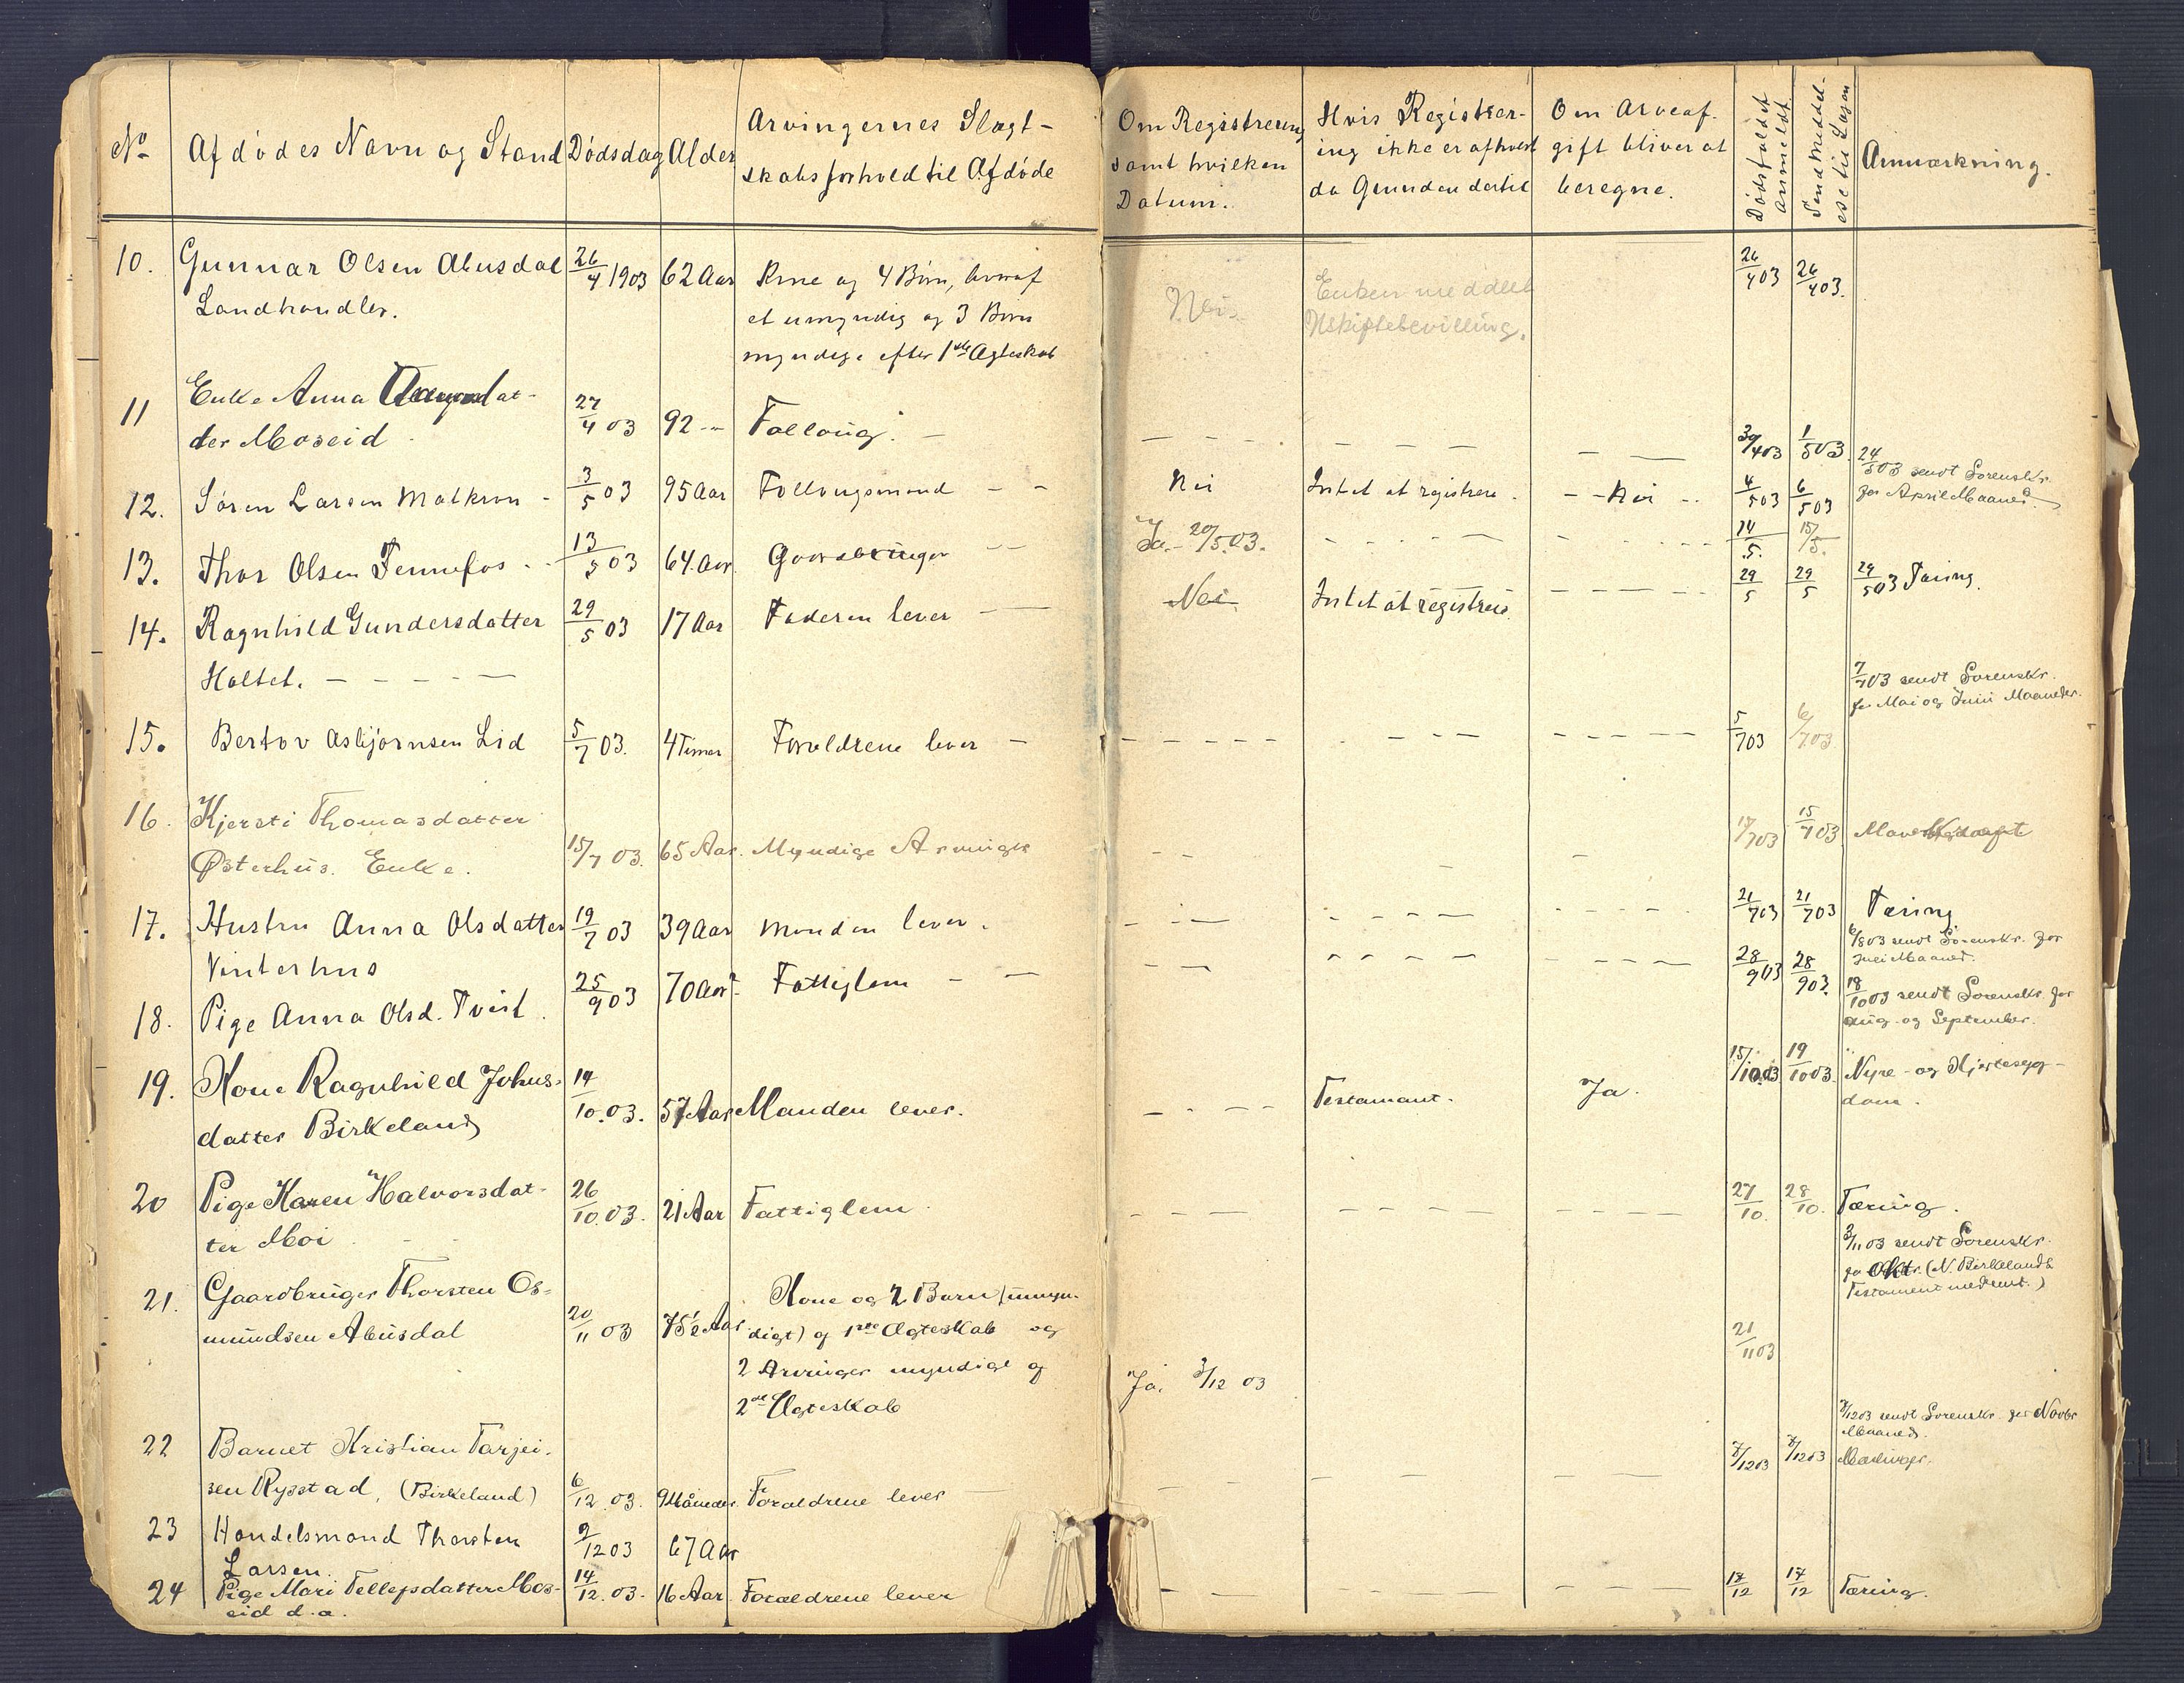 No
Afdødes Navn og Stand
Dødsdag
Alder
Arvingernes Slægt-
skabsforhold til Afdøde
10.
Gunnar Olsen Abusdal
Landhandler.
26/4 1903
62 Aar
Kone og 4 Børn, hvoraf
et umyndig og 3 Børn
myndige efter 1ste Ægteskab
11
Enke Anna
ter Moseid
27/4 03
92 -"-
Follaug. -
12.
Søren Larsen -
3/5 03
95 Aar
Follaugsmand - -
13.
Thor Olsen Fennefos - -
13/5 03
64 Aar
Gaardbruger - -
14.
Ragnhild Gundersdatter
Holtet. - - - - -
29/5 03
17 Aar
Faderen lever -
15.
Bertov Asbjørnsen Lid
5/7 03.
4 Timer
Forældrene lever -
16.
Kjersti Thomasdatter
Østerhus. Enke.
15/7 03.
65 Aar.
Myndige Arvinger
17.
Hustru Anna Olsdatter
Vinterhus
19/7 03
39 Aar
Manden lever.
18.
Pige Anna Olsd. Tveit.
25/9 03
70 Aar
Fattiglem - -
19.
Kone Ragnhild Johns-
datter Birkeland
14/10.03.
57 Aar
Manden lever.
20
Pige Karen Halvorsdat-
ter Moi
26/10.03.
21 Aar
Fattiglem.
21.
Gaardbruger Thorsten Os-
mundsen Abusdal
20/11 03
75½ Aar
Kone og 2 Børn (umyn-
digt) af 1ste Ægteskab og
2 Arvinger myndige af
2det Ægteskab
22
Barnet Kristian Tarjei-
sen Rysstad, (Birkeland)
6/12.03.
9 Måneder.
Forældrene lever
23
Handelsmand Thorsten
Larsen.
9/12 03
67 Aar
24
Pige Mari Tellefsdatter Mos-
eid d.a.
14/12.03.
16 Aar
Forældrene lever
Om Registrering
samt hvilken
Datum.
Hvis Registrer-
ing ikke er afholdt
da Grunden dertil
Om Arveaf-
gift bliver at
beregne.
Dødsfaldet
anmeldt
Sendt Meddel-
else til Lægen
Anmærkning.
Nei.
Enken meddelt
Uskiftebevilling.
26/4 03
26/4 03.
- - - -
- - -
- -
30/4 03
1/5 03
24/5 03 sendt Sorenskr.
for April Maaned.
Nei
Intet at registrere.
- - Nei - -
4/5 03
6/5 03
Ja - 20/5.03.
- - - -
- - - -
14/5.
15/5.
Nei
Intet at registrere
- - - -
29/5
29/5
29/5 03 Tæring.
7/7 03 sendt Sorenskr.
for Mai og Juni Maaneder.
- - - - -
- - -
- - - -
5/7 03
6/7 03
- -
-
-
15/7 03
15/7 03
- - -
- - - -
- - - -
21/7 03
21/7 03
Tæring
6/8 03 sendt Sorenskr. for
Juli Maaned.
- -
- - - -
- - - -
28/9 03
28/9 03.
18/10 03 sendt Sorenskr. for
Aug. og September.
- - - -
Testament.
Ja.
15/10.03
19/10 03.
Nyre- og Hjertesyg-
dom.
- - - -
- - - - -
- - - -
27/10.
28/10.
Tæring.
3/11 03 sendt Sorenskr.
for Oktr. (N. Birkelands
Testament medsent.)
Ja. 3/12 03
21/11 03
7/12 03 sendt Sorenskr. for Novbr
Maaned.
-
- -
- -
7/12 03
8/12 03
- -
- - -
- - - -
17/12
17/12
Tæring.